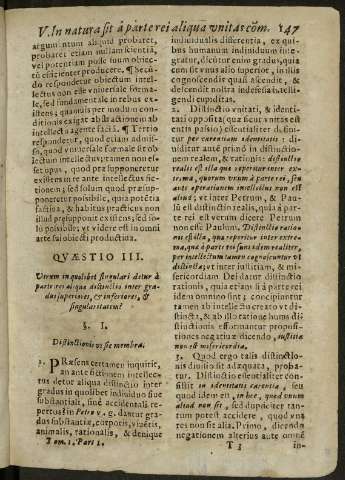 V. In natura sit à parte rei aliqua vnitas cõm. 147
argumentum aliquid probaret,
probaret etiam nullam scientiã,
vel potentiam posse suum obiec-
tũ efficienter producere. ¶ Secũ-
do respondetur obiectum intel-
lectus non esse vniversale forma-
le, sed fundamentale in rebus ex-
istens; quamvis per modum con-
ditionis exigat abstractionem ab
intellectu agente factã. ¶ Tertio
respondetur, quod etiam admis-
so, quod vniversale formale sit ob-
iectum intellectus; tamen non es-
set opus, quod præsupponeretur
existens in re ante intellectus fic-
tionem; sed solum quod præsup-
poneretur possibile, quia potẽtia
factiva, & habitus practicus non
illud præsupponit existens; sed so-
lo possibile; vt videre est in omni
arte sui obiecti productiva.
QVÆSTIO III.
Vtrum in quolibet singulari detur à
parte rei aliqua distinctio inter gra-
dus superiores, & inferiores, &
singularitatem?
§. I.
Distinctionis visæ membra.
1. PRæsens certamen inquirit,
an ante fictionem intellec-
tus detur aliqua distinctio inter
gradus in quolibet individuo sive
substantiali, sive accidentali re-
pertus? in Petro v. g. dantur gra-
dus substantiæ, corporis, viventis,
animalis, rationalis, & denique
Tom. 1. Part. 1.
individualis differentia, ex qui-
bus humanum individuum inte-
gratur, dicũtur enim gradus, quia
cum sit vnus alio superior, in illis
cognoscendis ascendit, sive
descendit nostra indefessa intelli-
gendi cupiditas.
2. Distinctio vnitati, & identi-
tati opposita (quæ sicut vnitas est
entis passio) essentialiter defini-
tur per carentiam identitatis: di-
viditur autẽ primò in distinctio-
nem realem, & rationis: distinctio
realis est illa quæ reperitur inter ex-
trema, quorum vnum à parte rei, sive
ante operationem intellectus non est
aliud; vt inter Petrum, & Pau-
lum est distinctio realis, quia à par-
te rei est verum dicere Petrum
non esse Paulum. Distinctio ratio-
nis est illa, quæ reperitur inter extre-
ma, quæ à parte rei sunt idem realiter,
per intellectum tamen cognoscuntur vt
distincta; vt inter iustitiam, & mi-
sericordiam Dei datur distinctio
rationis, quia etsi à parte rei
idem omnino sint; concipiuntur
tamen ab intellectu creato vt di-
stincta, & ab illo ratione huius di-
stinctionis efformantur proposi-
tiones negativæ dicendo, iustitia
non est misericordia.
3. Quod ergo talis distinctio-
nis divisio sit adæquata, proba-
tur. Distinctio essentialiter consi-
stit in identitatis carentia, seu
quod idem est, in hoc, quod vnum
aliud non sit, sed dupliciter tan-
tum potest accidere, quod vna
res non sit alia. Primo, dicendo
negationem alterius ante omnẽ
T 3
in-